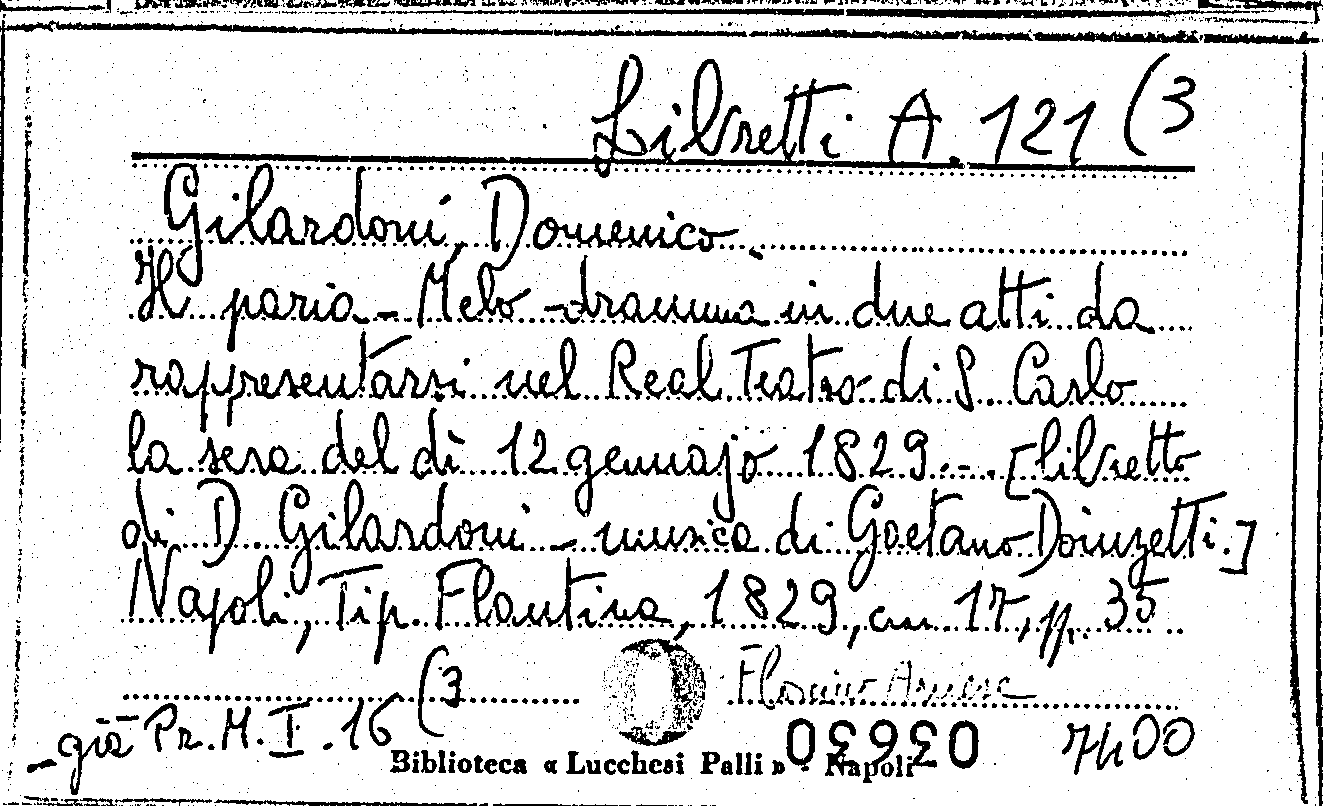 Libretti A. 121 (3
Gilardoni, Domenico.
Il paria - Melo-dramma in due atti da
rappresentarsi nel Real Teatro di S. Carlo
la sera del dì 12 gennajo 1829.-. [libretto
di D. Gilardoni - musica di Gaetano Doinzetti.]
Napoli, Tip. Flautina, 1829, cm 17, pp. 35
già Pr. M. I. 16 (3
036630 7400
Biblioteca « Lucchesi Palli » - Napoli